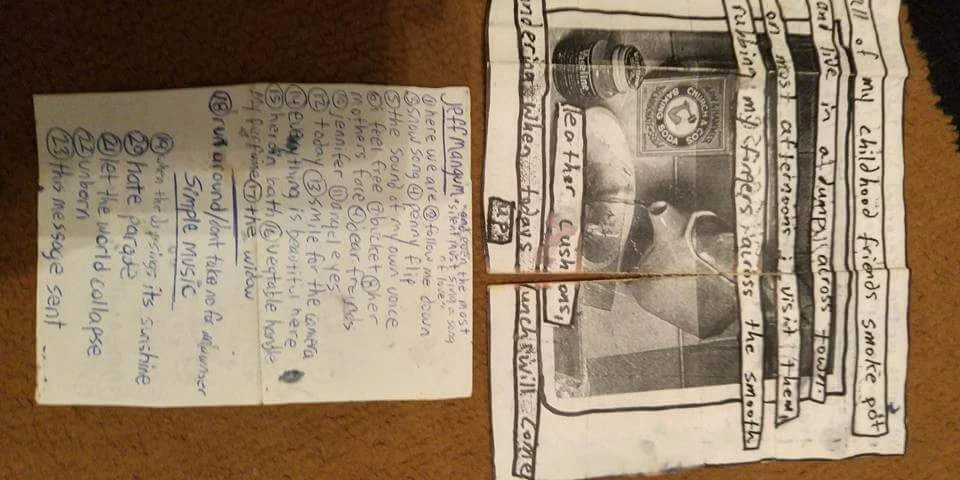 Jeff Mangum
"and even the most
silent must sing a song
of love"
① here we are ② follow me down
③ snow song ④ penny flip
⑤ the sound of my own voice
⑥ i feel free ⑦ bicket ⑧ her
mothers face ⑨ dear friends
⑩ jennifer ⑪ angel eyes
⑫ today ⑬ smile for the camera
⑭ everything is beautiful here
⑮ hero in bath ⑯ vegtable
my fortune ⑰ the willow
⑱ run around/dont take no for an answer
Simple music
⑲ when the day its sunshine
⑳ hate parade
㉑ let the world collapse
㉒ unborn
㉓ this message sent
all of my childhood friends smoke pot
and live in a dump across town.
on most afternoons i visit them,
rubbing my fingers across the smooth
Vaseline
CHURCH & CO'S
BAKING SODA
leather cushions,
when todays lunch will come
up.